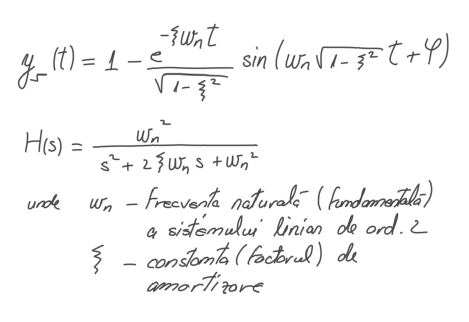 y_Γ (t) = 1 - e^{-ξωₙt} / √(1-ξ²) sin (ωₙ√(1-ξ²) t + φ)
H(s) = ωₙ² / (s² + 2ξωₙ s + ωₙ²)
unde ωₙ - frecventa naturală (fundamentală)
a sistemului liniar de ord. 2
ξ - constanta (factorul) de
amortizare